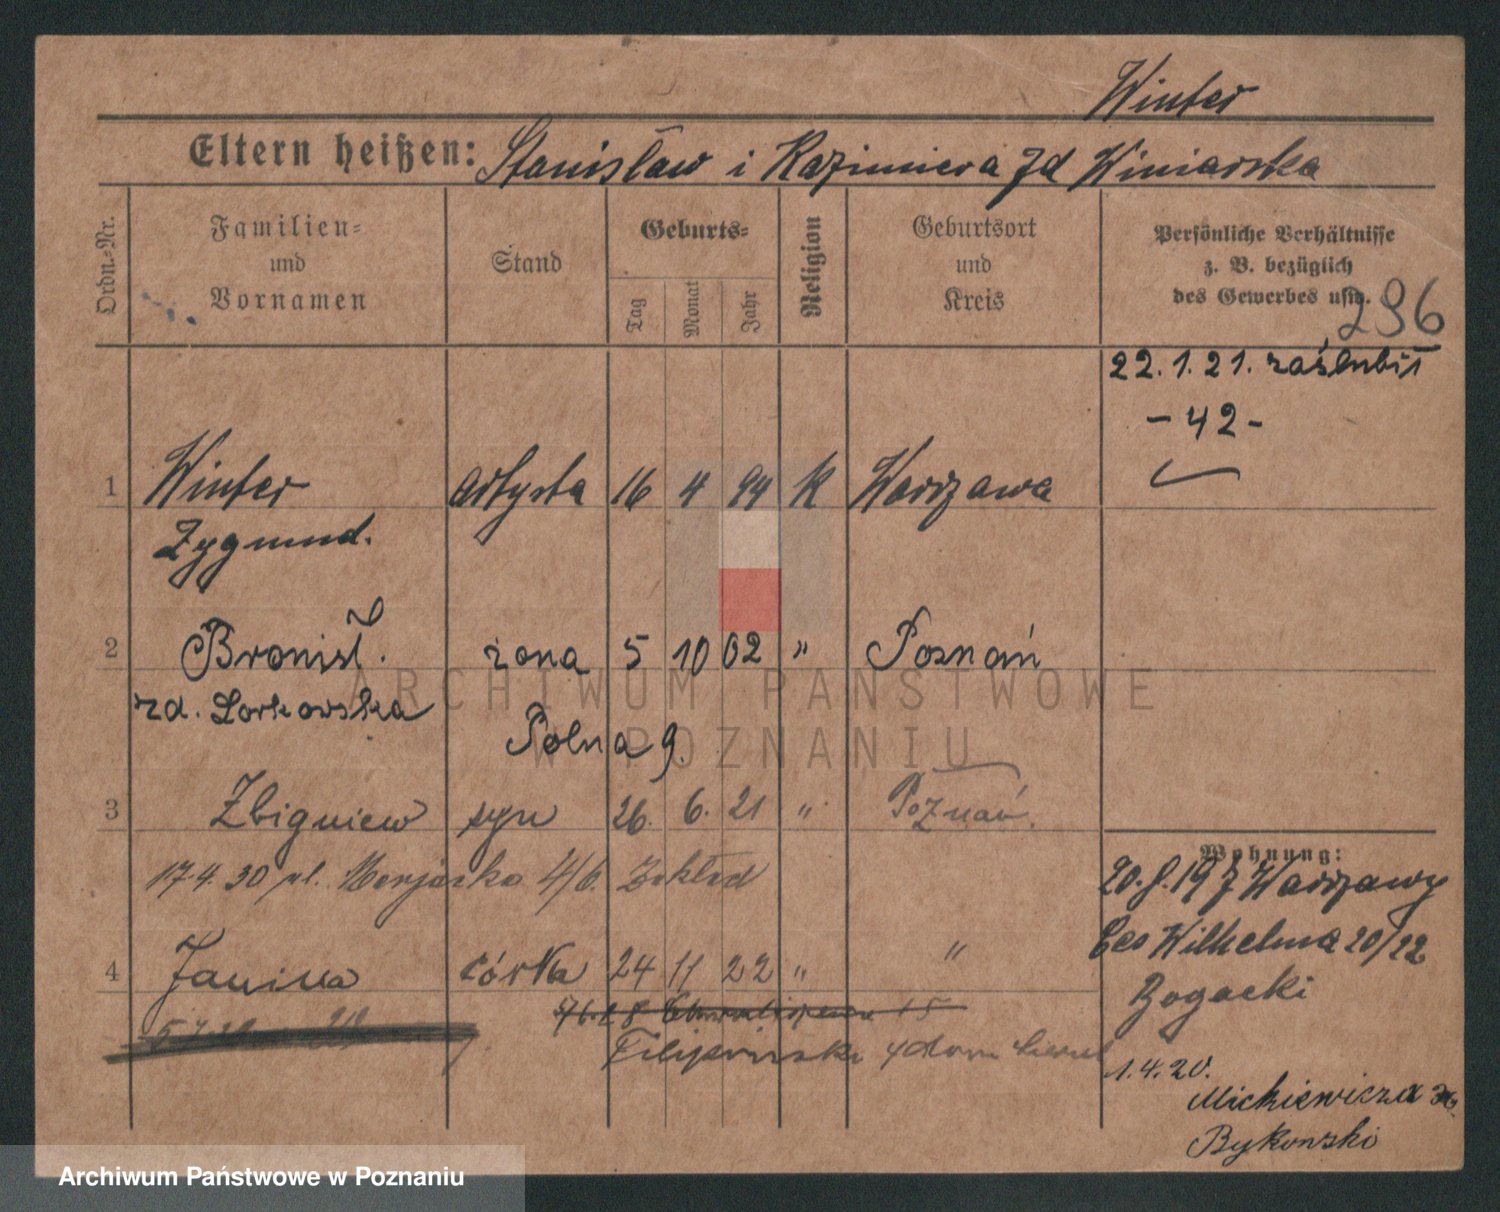 Winter
Eltern heißen: Stanisław i Kazimiera zd Winiarska
Ordn.-Nr.
Familien- und Vornamen
Stand
Geburts-
Tag
Monat
Jahr
Religion
Geburtsort und Kreis
Persönliche Verhältnisse
z. B. bezüglich
des Gewerbes usw.
296
22.1.21. zaślubił
- 42 -
1 Winter artysta 16 4 94 K Warszawa
Zygmund.
2 Bronisł. żona 5 10 02 " Poznań
zd. Lorkowska
Polna 9.
3 Zbigniew syn 26. 6. 21 " Poznań.
Wohnung:
17.4.30 pl. 4/6.
20.8.19 z Warszawy
Wilhelma 20/22
4 Janina córka 24 11 22 " "
Bogacki
1.4.20.
Mickiewicza
Bykowski
ARCHIWUM PAŃSTWOWE
W POZNANIU
Archiwum Państwowe w Poznaniu